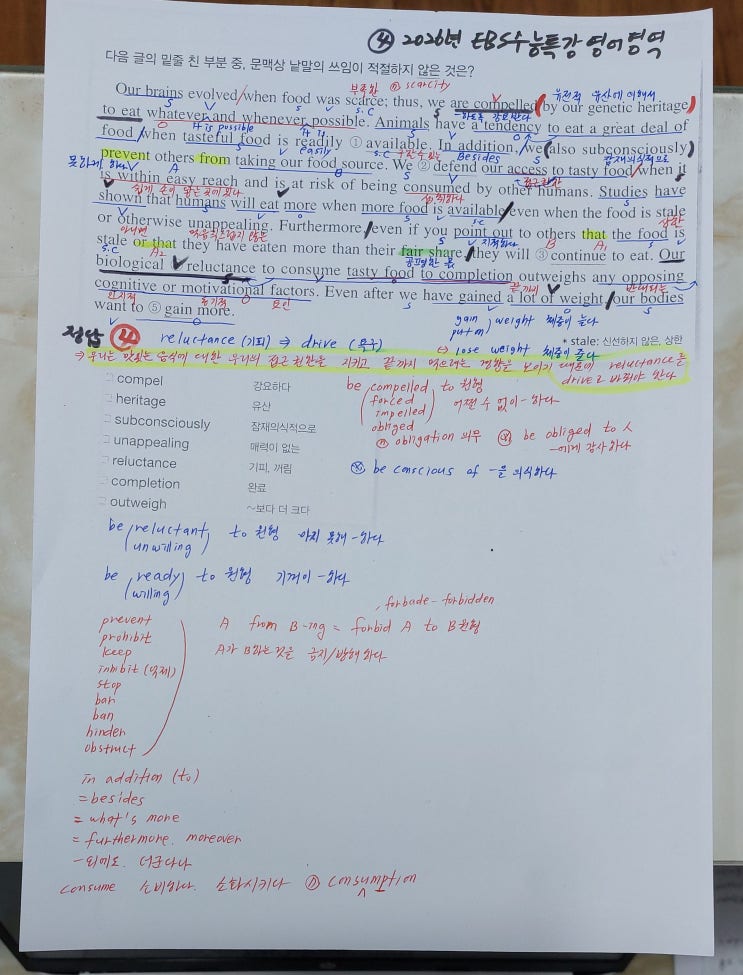 ④ 2026년 EBS수능특강 영어영역
다음 글의 밑줄 친 부분 중, 문맥상 낱말의 쓰임이 적절하지 않은 것은?
부족한 ⓝ scarcity
유전적 유산에 의해서
Our brains evolved when food was scarce; thus, we are compelled (by our genetic heritage)
to eat whatever and whenever possible. Animals have a tendency to eat a great deal of
it is possible it is
food when tasteful food is readily ① available. In addition, we (also subconsciously)
easily Besides 잠재의식적으로
prevent others from taking our food source. We ② defend our access to tasty food when it
is within easy reach and is at risk of being consumed by other humans. Studies have
shown that humans will eat more when more food is available even when the food is stale
or otherwise unappealing. Furthermore, even if you point out to others that the food is
지적하다
stale or that they have eaten more than their fair share, they will ③ continue to eat. Our
공평한 몫
biological ④ reluctance to consume tasty food to completion outweighs any opposing
끝까지 반대되는
cognitive or motivational factors. Even after we have gained a lot of weight, our bodies
인지적 동기적 요인
want to ⑤ gain more.
gain weight 체중이 늘다
put on
* stale: 신선하지 않은, 상한
정답 ④ reluctance (기피) ⇒ drive (욕구)
↔ lose weight 체중이 줄다
⇒ 우리는 맛있는 음식에 대한 우리의 접근 권한을 지키고 끝까지 먹으려는 경향을 보이기 때문에 reluctance를
drive로 바꿔야 한다
compel 강요하다
heritage 유산
subconsciously 잠재의식적으로
unappealing 매력이 없는
reluctance 기피, 꺼림
completion 완료
outweigh ~보다 더 크다
be compelled to 원형
forced 어쩔 수 없이 -하다
impelled
obliged
ⓝ obligation 의무 ※ be obliged to 人
-에게 감사하다
※ be conscious of -을 의식하다
be reluctant to 원형 마지 못해 -하다
unwilling
be ready to 원형 기꺼이 -하다
willing
, forbade - forbidden
prevent A from B-ing = forbid A to B원형
prohibit
keep A가 B하는 것을 금지/방해 하다
inhibit (억제)
stop
bar
ban
hinder
obstruct
in addition (to)
= besides
= what's more
= furthermore. moreover
- 외에도. 더군다나
consume 소비하다. 소화시키다 ⓝ consumption